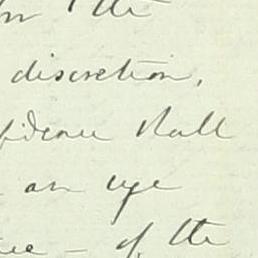 the
discretion,
fidence shall
an eye
- of the